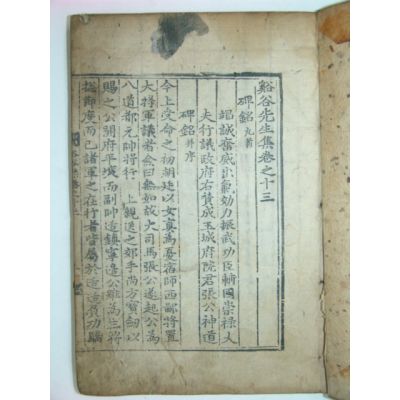 谿谷先生集卷之十三
碑銘 九首
竭誠奮威出氣効力振武功臣輔國崇祿大
夫行議政府右贊成玉城府院君張公神道
碑銘 幷序
今上受命之初朝廷以女真為憂宿師西鄙將置
大將軍議者僉曰無如故大司馬張公遂起公為
八道都元帥將行 上親送之郊手尚方寶劍以
賜之公開府平壤而副帥适鎮寧邊公雖為主將
摠節度而已諸軍之在行者皆屬於适适負功驕